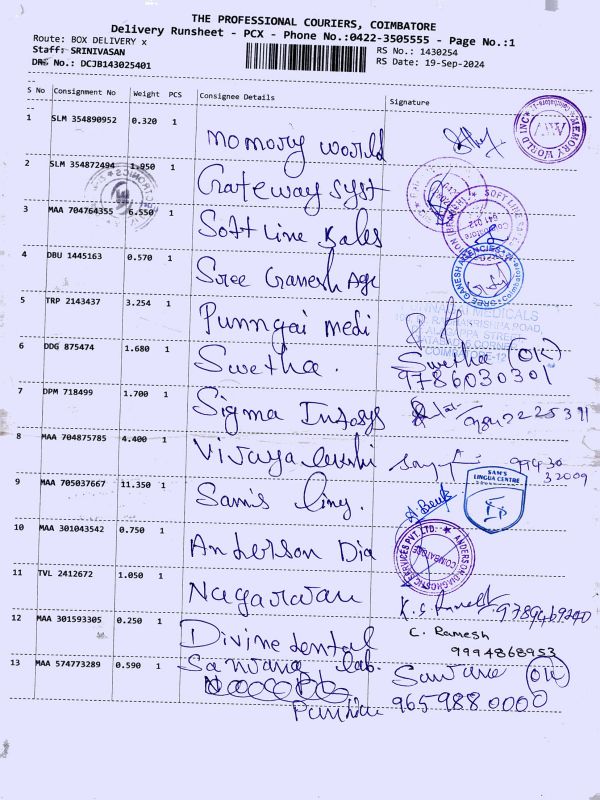 THE PROFESSIONAL COURIERS, COIMBATORE
Delivery Runsheet - PCX - Phone No.:0422-3505555 - Page No.:1
Route: BOX DELIVERY x
Staff: SRINIVASAN
DRS No.: DCJB143025401
RS No.: 1430254
RS Date: 19-Sep-2024
S No Consignment No Weight PCS Consignee Details Signature
1 SLM 354890952 0.320 1 Momory world MEMORY WORLD INC
2 SLM 354872494 1.950 1 Gateway Syst
3 MAA 704764355 6.550 1 Soft Line Sales SOFT LINE
4 DBU 1445163 0.570 1 Sree Ganesh Age SREE GANESH AGENCIES
5 TRP 2143437 3.254 1 Punngai medi MEDICALS
6 DDG 875474 1.680 1 Swetha. Swetha OK
9786030301
7 DPM 718499 1.700 1 Sigma Infosys
8 MAA 704875785 4.400 1 Vijayalakshi
9 MAA 705037667 11.350 1 Sams Ling. SAM'S LINGUA CENTRE
10 MAA 301043542 0.750 1 Anderson Dia ANDERSON DIAGNOSTIC SERVICES PVT. LTD. COIMBATORE
11 TVL 2412672 1.050 1 Nagarwau
12 MAA 301593305 0.250 1 Divine dental lab. C. Ramesh
9994868953
13 MAA 574773289 0.590 1 OK
9659880000